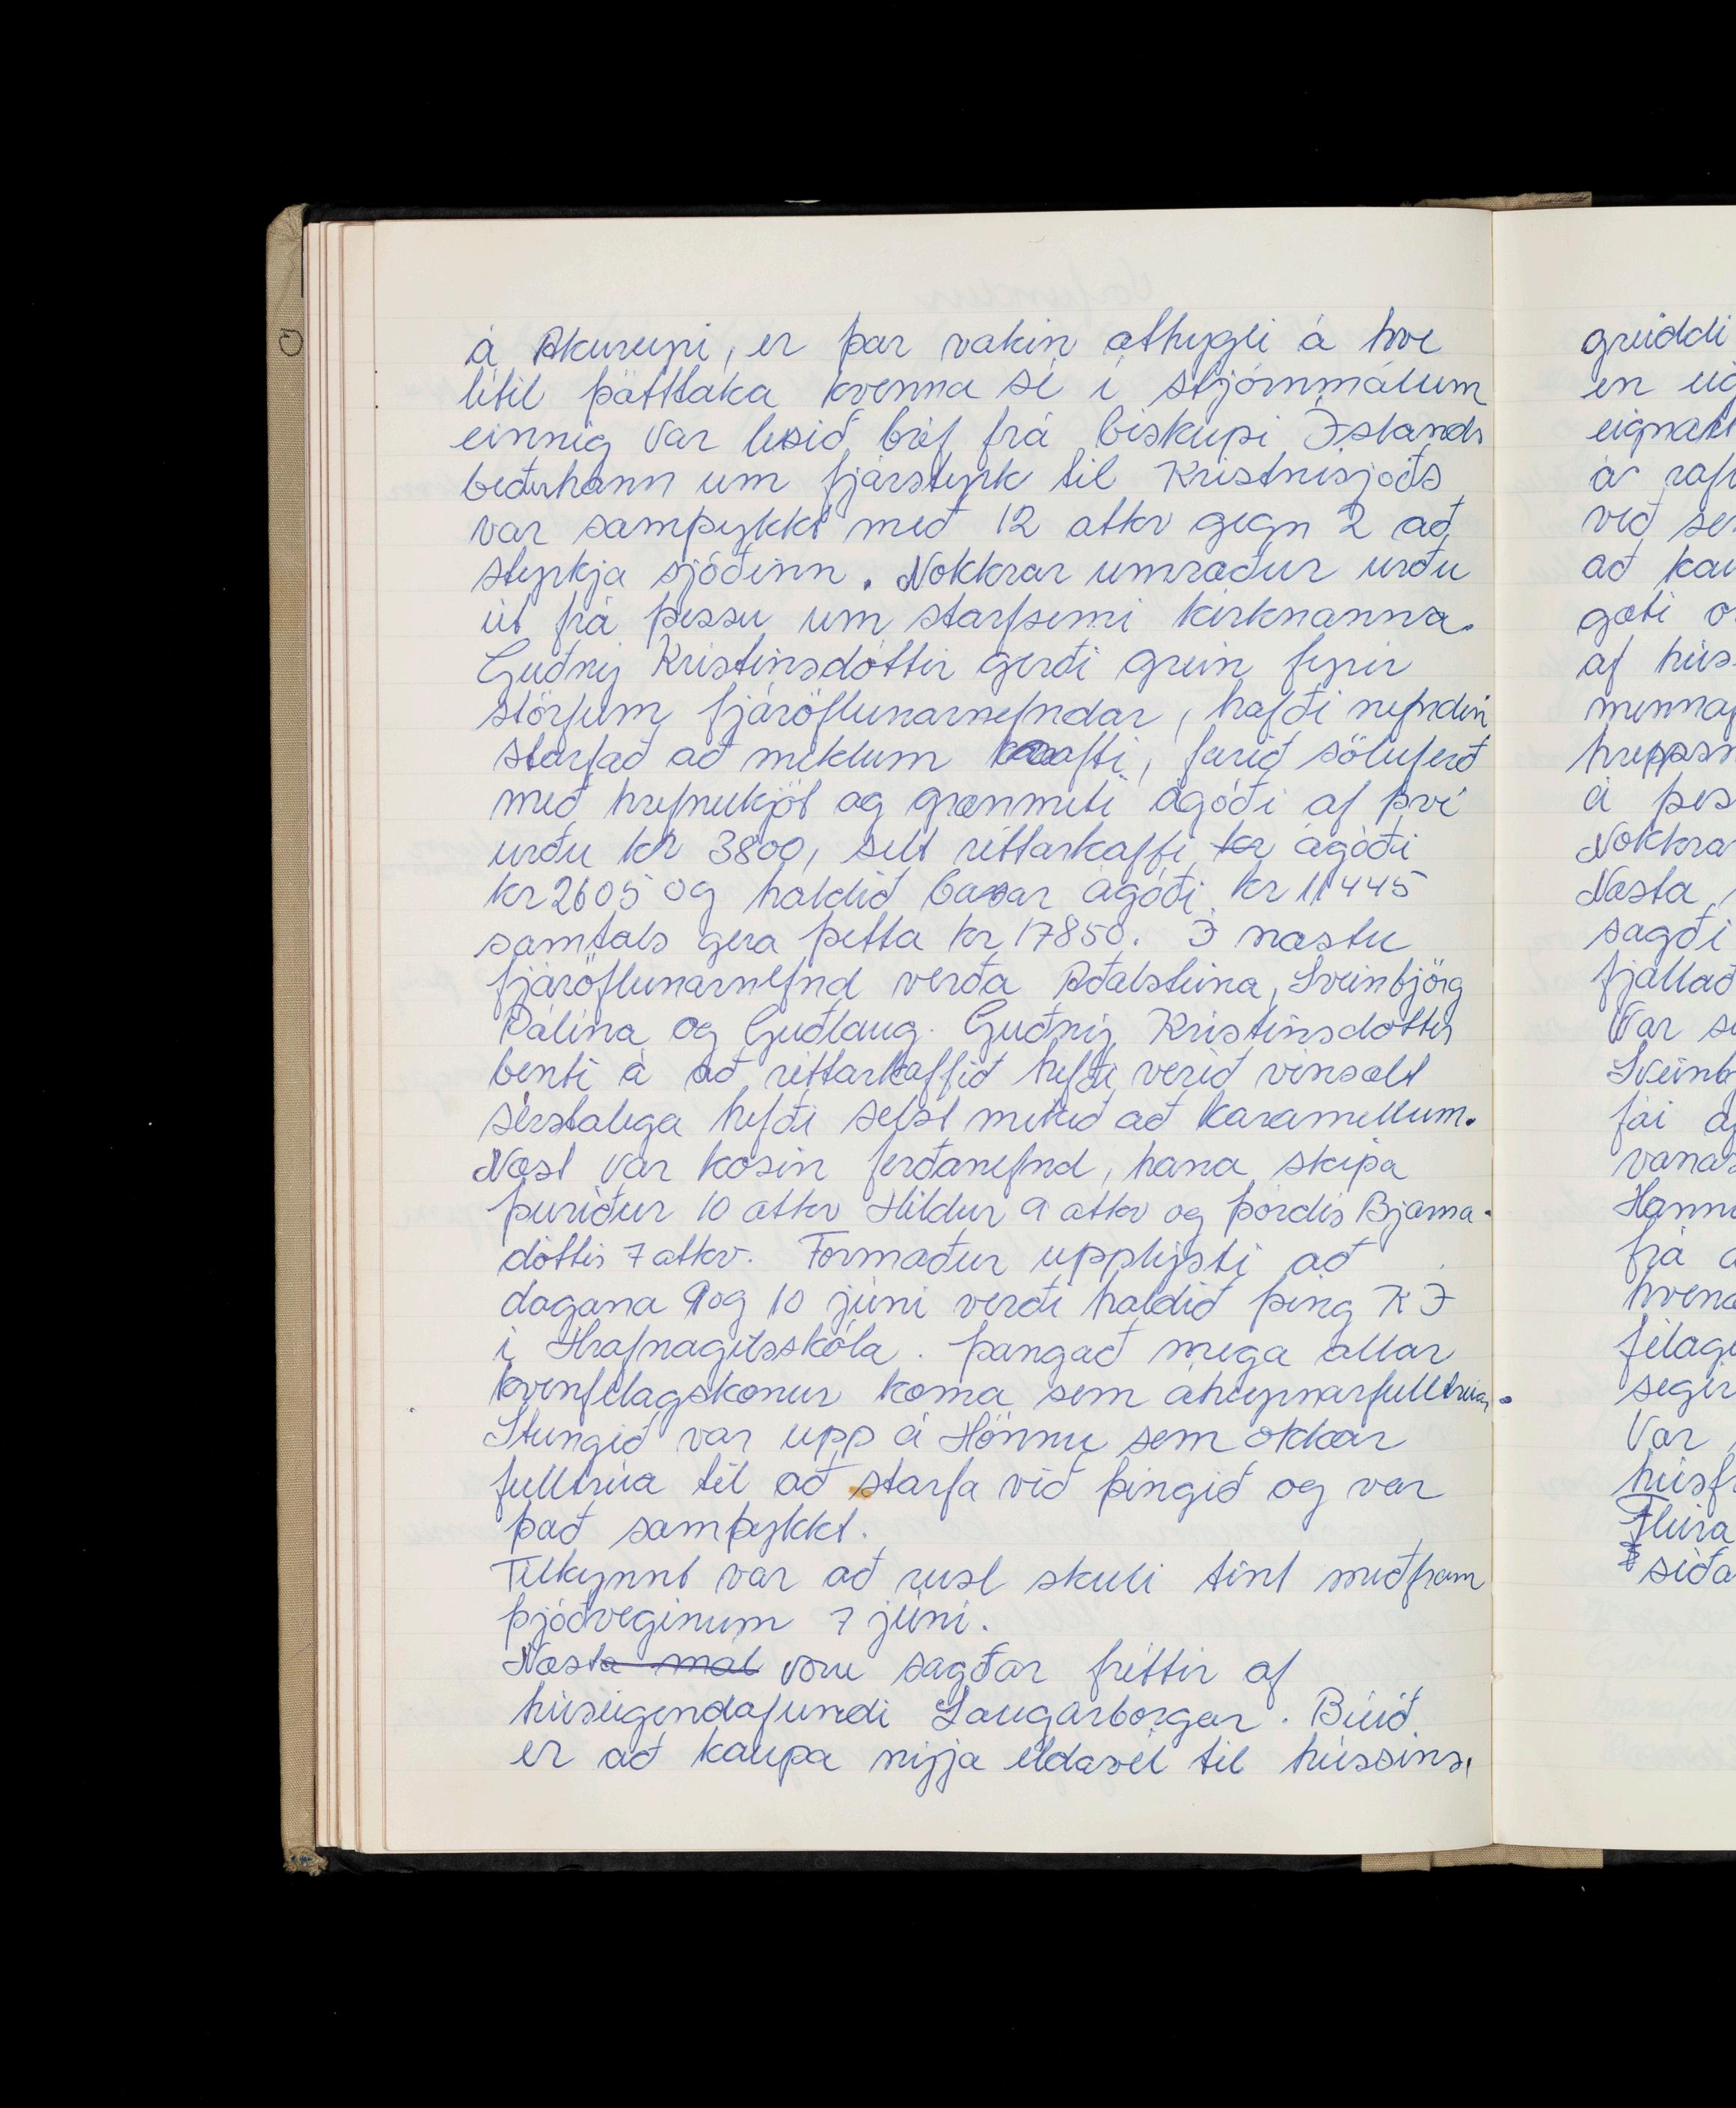 á Akureyri, er þar vakin athygli á hve
lítil þátttaka kvenna sé í stjórnmálum
einnig var lesið bréf frá biskupi Íslands
beður hann um fjárstyrk til Kristnisjóðs
var samþykkt með 12 atkv gegn 2 að
styrkja sjóðinn. Nokkrar umræður urðu
út frá þessu um starfsemi kirknanna.
Guðný Kristinsdóttir gerði grein fyrir
störfum fjáröflunarnefndar, hafði nefndin
starfað að miklum krafti, farið söluferð
með hrefnukjöt og grænmeti ágóði af því
urðu kr 3800, selt réttarkaffi kr ágóði
kr 2605 og haldið basar ágóði kr 11445
samtals gera þetta kr 17850. Í næstu
fjáröflunarnefnd verða Aðalsteina, Sveinbjörg
Pálína og Guðlaug. Guðný Kristinsdóttir
benti á að réttarkaffið hefði verið vinsælt
sérstalega hefði selst mikið að karamellum.
Næst var kosin ferðanefnd, hana skipa
Þuríður 10 atkv Hildur 9 atkv og Þórdís Bjarna-
dóttir 7 atkv. Formaður upplýsti að
dagana 9 og 10 júní verði haldið þing K Í
í Hrafnagilsskóla. Þangað mega allar
kvenfélagskonur koma sem áheyrnarfulltrúar.
Stungið var upp á Hönnu sem okkar
fulltrúa til að starfa við þingið og var
það samþykkt.
Tilkynnt var að rusl skuli tínt meðfram
þjóðveginum 7 júní.
Næsta mál voru sagðar fréttir af
húseigendafundi Laugarborgar. Búið
er að kaupa nýja eldavél til hússins,
greiddi
en
eignah
á raf
við
að
gæti
af hús
hrepps
á þes
Nokkra
Næsta
sagði
fjallað
Var
Sveinb
fái
Hann
frá
félag
segir
Var
húsf
síða